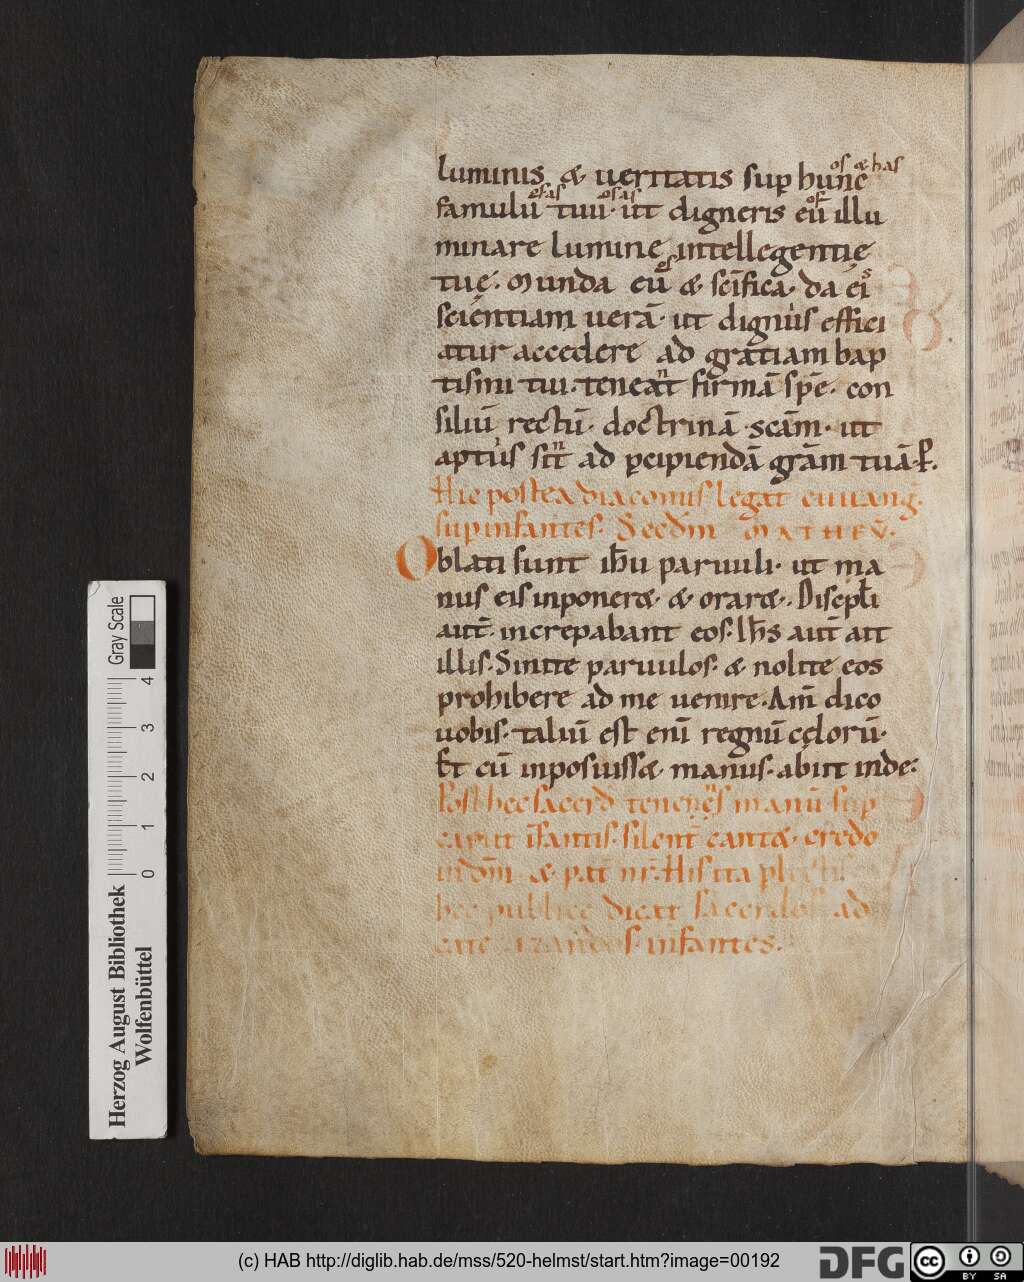 luminis, & ueritatis sup hunc os & has
famulū os as tuū os as ut digneris eū os illu
minare lumine intellegentię
tuę. Munda eū os & sc̄ifica. da eis
scientiam uerā. ut digni us effici
atur accedere ad gratiam bap
tismi tui. teneat n firmā spē. con
siliū rectū. doctrinā scām. ut
aptus i sit n ad percipiendā grām tuā. P.
Hic postea diaconus legat euuang.
sup infantes. Secdm MATHEV̄.
Oblati sunt ihu paruuli. ut ma
nus eis inponer&. & orar&. Discipli
aut. increpabant eos. Ihs aut ait
illis. Sinite paruulos. & nolite eos
prohibere ad me uenire. Am̄ dico
uobis. taliū est enī regnū cęlorū.
Et cū inposuiss& manus. abiit inde:
Post hec sacerd manū sup
caput infantis. silent cant&. credo
in dm̄. & pat nr. His ita
hec publice dicat sacerdos ad
infantes.
Gray Scale
0 1 2 3 4
Herzog August Bibliothek
Wolfenbüttel
(c) HAB http://diglib.hab.de/mss/520-helmst/start.htm?image=00192
DFG
cc BY SA